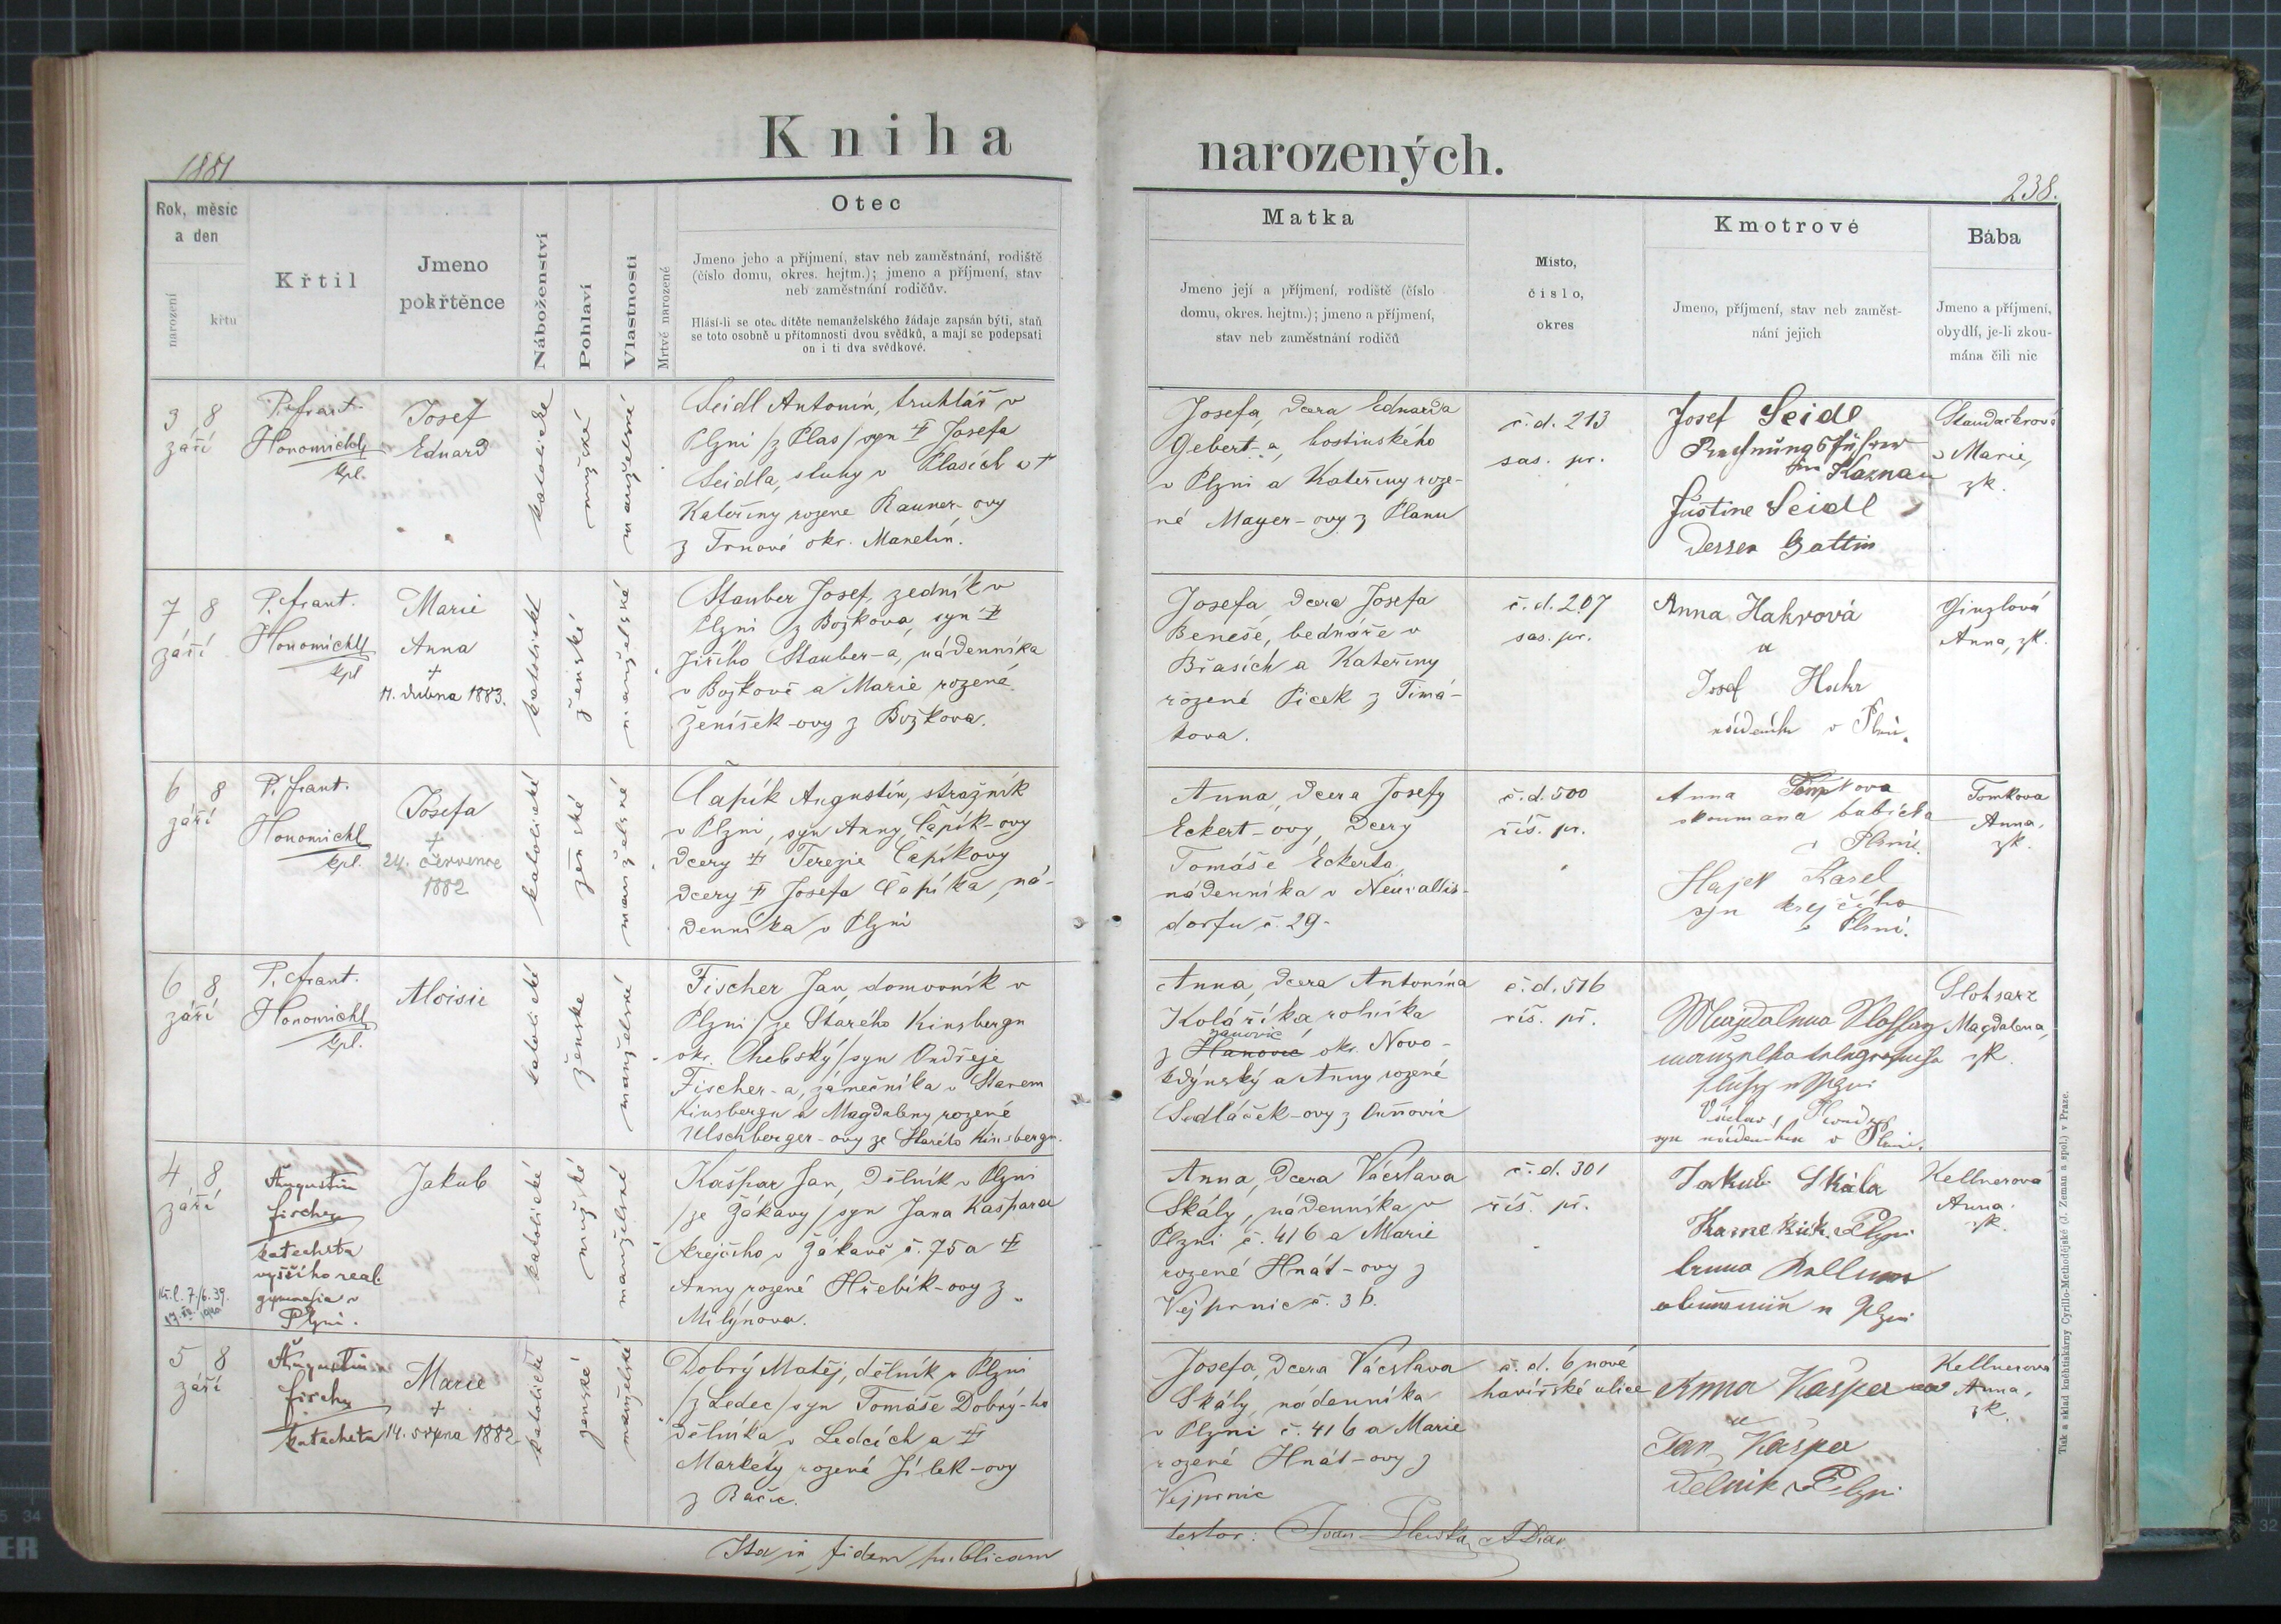 Kniha narozených.
1881
238.
Rok, měsíc
a den
narození
křtu
Křtil
Jmeno
pokřtěnce
Náboženství
Pohlaví
Vlastnosti
Mrtvě narozené
Otec
Jmeno jeho a příjmení, stav neb zaměstnání, rodiště
(číslo domu, okres. hejtm.); jmeno a příjmení, stav
neb zaměstnání rodičův.
Hlásí-li se otec dítěte nemanželského žádaje zapsán býti, staň
se toto osobně u přítomnosti dvou svědků, a mají se podepsati
on i ti dva svědkové.
Matka
Jmeno její a příjmení, rodiště (číslo
domu, okres. hejtm.); jmeno a příjmení,
stav neb zaměstnání rodičů
Místo,
číslo,
okres
Kmotrové
Jmeno, příjmení, stav neb zaměst-
nání jejich
Bába
Jmeno a příjmení,
obydlí, je-li zkou-
mána čili nic
3 8
září
P. Frant.
Honomichl
kpl.
Josef
Eduard
katolické
mužské
manželské
Seidl Antonín, truhlář v
Plzni /z Plas/ syn Josefa
Seidla, sluhy v Plasích a †
Kateřiny rozené Rauner-ovy
z Trnové okr. Manetín.
Josefa, dcera Eduarda
Gebert-a, hostinského
v Plzni a Kateřiny roze-
né Mayer-ovy z Planu
č. d. 213
sas. pr.
Josef Seidl
Rechnungsführer
Kaznau
Justine Seidl
dessen Gattin
Marie,
zk.
7 8
září
P. Frant.
Honomichl
kpl
Marie
Anna
†
11. dubna 1883.
katolické
ženské
manželské
Stauber Josef, zedník v
Plzni z Božkova, syn
Jiřího Stauber-a, nádenníka
v Božkově a Marie rozené
Ženíšek-ovy z Božkova.
Josefa, dcera Josefa
Beneše, bednáře v
Břasích a Kateřiny
rozené Picek z Timá-
kova.
č. d. 207
sas. pr.
Anna Hahrová
a
Josef Hahr
v Plzni.
Ginzlová
Anna, zk.
6 8
září
P. Frant.
Honomichl
kpl.
Josefa
†
24. července
1882
katolické
ženské
manželské
Čapík Augustin, strážník
v Plzni, syn Anny Čapík-ovy
dcery Terezie Čapíkovy
dcery Josefa Čapíka, ná-
denníka v Plzni
Anna, dcera Josefy
Eckert-ovy, dcery
Tomáše Eckerta,
nádenníka v
dorfu č. 29.
č. d. 500
říš. př.
Anna Tomkova
skoumana babička
v Plzni.
Hajek Karel
syn krejčího
v Plzni.
Tomkova
Anna,
zk.
6 8
září
P. Frant.
Honomichl
kpl.
Aloisie
katolické
ženske
manželské
Fischer Jan, domovník v
Plzni /ze Starého Kinsbergu
okr. Chebský/ syn Ondřeje
Fischer-a, zámečníka v Starem
Kinsbergu a Magdaleny rozené
Ulschberger-ovy ze Starého Kinsbergu.
Anna, dcera Antonína
Koláříka rolníka
z Hanovic okr. Novo-
kdýnský a Anny rozené
Sedláček-ovy z
č. d. 516
říš. př.
v Plzni.
Magdalena,
zk.
4 8
září
Kř. l. 7./6. 39.
Augustin
Fischer
katecheta
vyššího real.
gymnasia v
Plzni.
Jakub
katolické
mužské
manželské
Kašpar Jan, dělník v Plzni
/ze Žákavy/ syn Jana Kašpara
krejčího v Žákavě č. 75 a
Anny rozené Hřebík-ovy z
Milýnova.
Anna, dcera Václava
Skály, nádenníka v
Plzni č. 416 a Marie
rozené Hnát-ovy z
Vejprnic č. 36.
č. d. 301
říš. př.
Jakub Skála
Kellnerová
Anna.
zk.
5 8
září
Augustin
Fischer
katecheta
Marie
†
14. srpna 1882
katolické
ženské
manželské
Dobrý Matěj, dělník v Plzni
/z Ledec/ syn Tomáše Dobrý-ho
dělníka v Ledcích a
Markéty rozené Jílek-ovy
z
Josefa, dcera Václava
Skály, nádenníka
v Plzni č. 416 a Marie
rozené Hnát-ovy z
Vejprnic
č. d. 6 nové
havířské ulice
Anna Kašpar
a
Jan Kašpar
Dělník v Plzni
Kellnerová
Anna,
zk.
Ita in fidem publicam
testor:
Tisk a sklad kněhtiskárny Cyrillo-Methodějské (J. Zeman a spol.) v Praze.